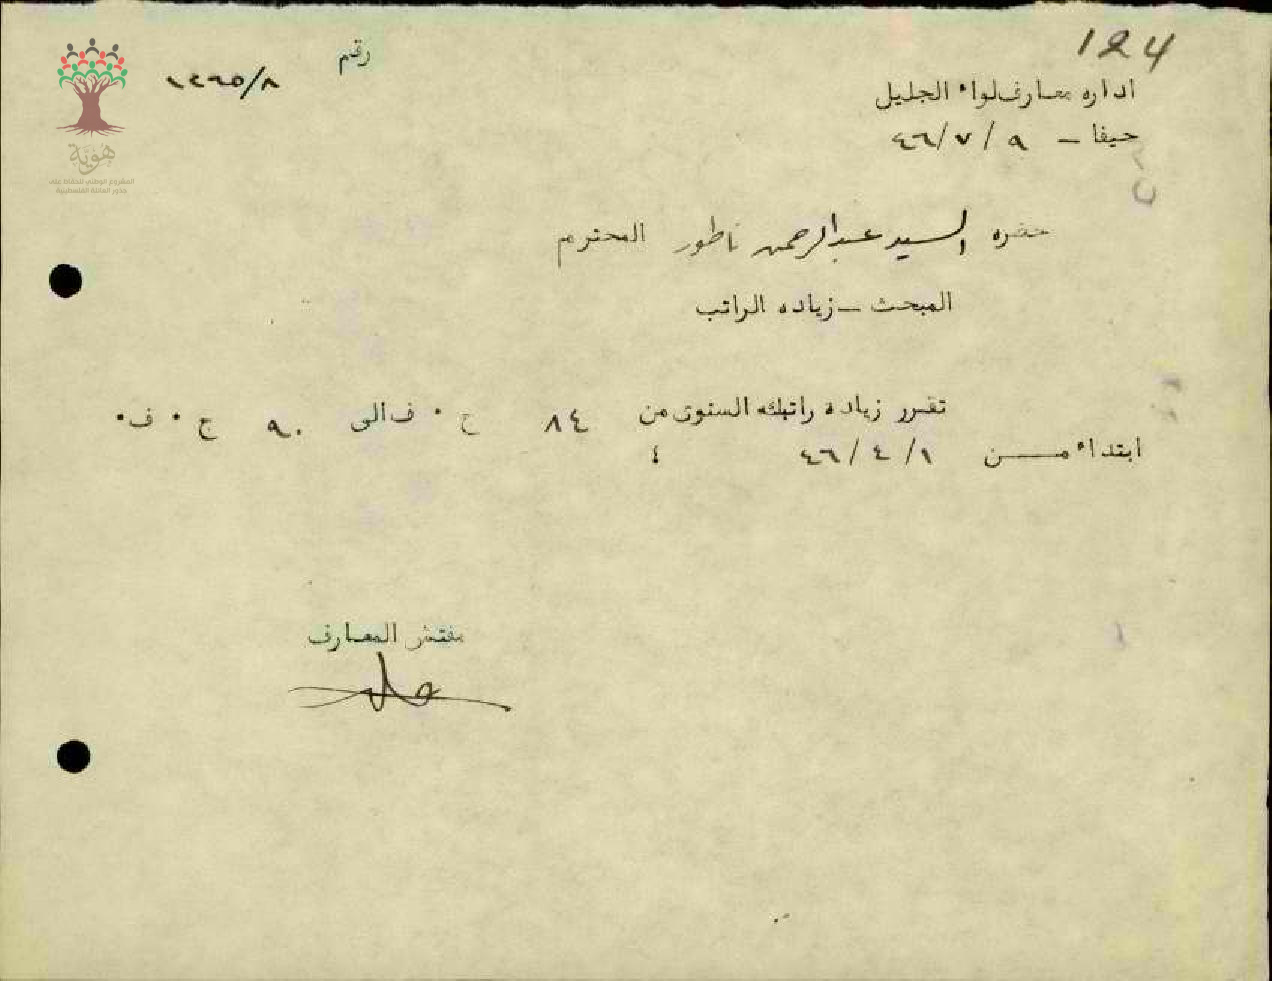 124
رقم
اداره معارف لواء الجليل
حيفا – ٩ / ٧ / ٤٦
حضره السيد عبدالرحمن ناطور المحترم
المبحث – زياده الراتب
تقرر زيادة راتبكم السنوى من ٨٤ ج ٠ ف الى ٩٠ ج ٠ ف٠
ابتداء من ١ / ٤ / ٤٦
مفتش المعارف
هوية
المشروع الوطني للحفاظ على
جذور العائلة الفلسطينية